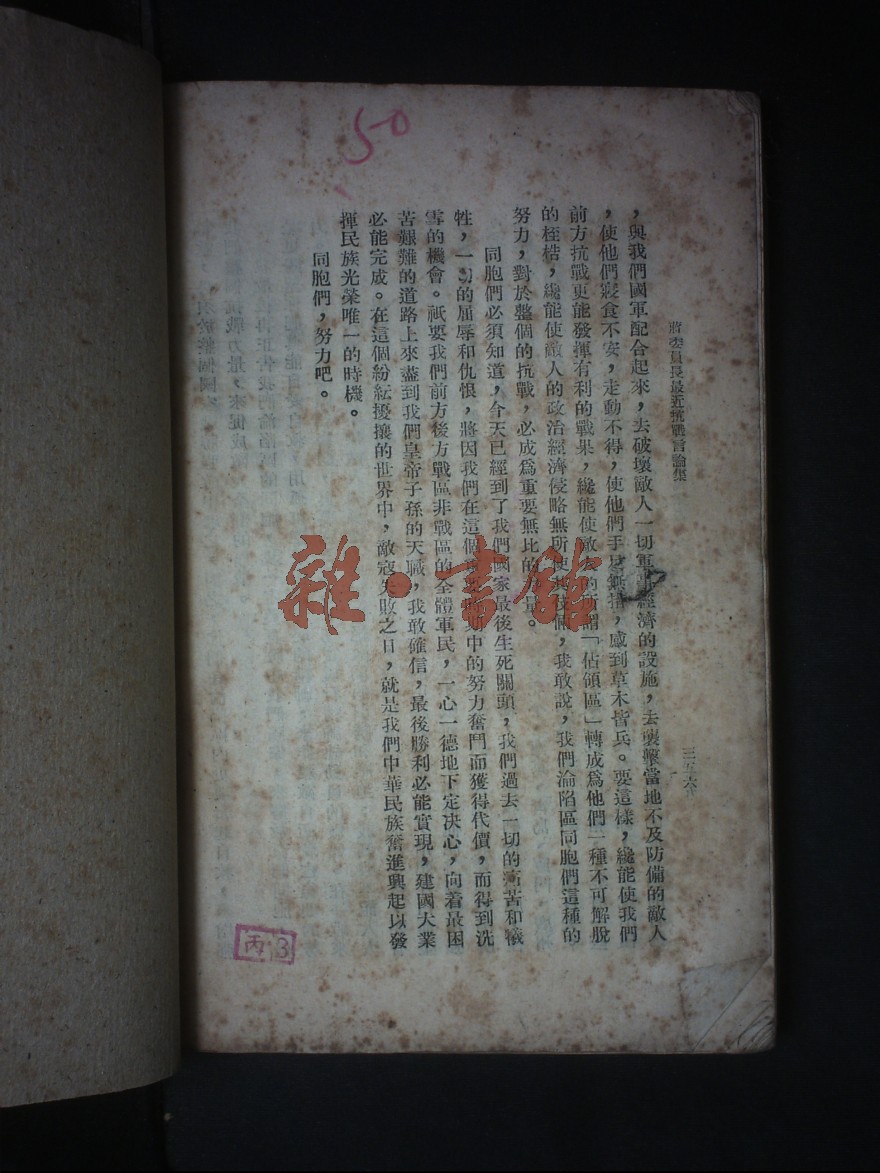 50
蔣委員長最近抗戰言論集
三五六
，與我們國軍配合起來，去破壞敵人一切軍事經濟的設施，去襲擊當地不及防備的敵人
，使他們寢食不安，走動不得，使他們手足無措，感到草木皆兵。要這樣，纔能使我們
前方抗戰更能發揮有利的戰果，纔能使敵人的所謂「佔領區」轉成爲他們一種不可解脫
的桎梏，纔能使敵人的政治經濟侵略無所使其技倆，我敢說，我們淪陷區同胞們這種的
努力，對於整個的抗戰，必成爲重要無比的力量。
同胞們必須知道，今天已經到了我們國家最後生死關頭，我們過去一切的痛苦和犧
牲，一切的屈辱和仇恨，將因我們在這個重要時期中的努力奮鬥而獲得代價，而得到洗
雪的機會。祇要我們前方後方戰區非戰區的全體軍民，一心一德地下定決心，向着最困
苦艱難的道路上來盡到我們皇帝子孫的天職，我敢確信，最後勝利必能實現，建國大業
必能完成。在這個紛紜擾攘的世界中，敵寇失敗之日，就是我們中華民族奮進興起以發
揮民族光榮唯一的時機。
同胞們，努力吧。
雜·書館
丙 3